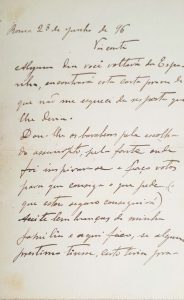 Roma 28 de junho de 96
Vicente
Alguem deu você voltará da Espa-
nha, encontrará esta carta prova de
que não me esqueci da resposta que
lhe devia.
Dou-lhe os parabens pela escolha
do assumpto, pela fonte onde
foi inspirar-se e faço votos
para que consiga o que pede (
que estou seguro conseguirá)
Aceite lembranças de minha
familia e aqui fico, se algum
prestimo tiver,